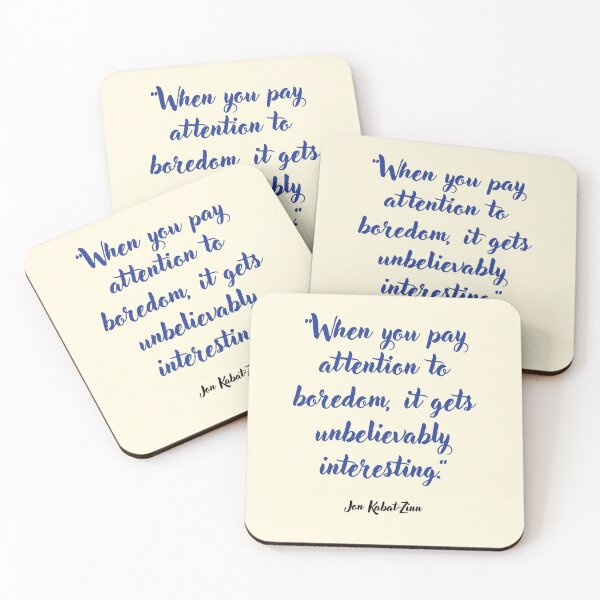 "When you pay
attention to
boredom, it gets
"When you pay
attention to
boredom, it gets
unbelievably
interesting."
"When you pay
attention to
boredom, it gets
unbelievably
Jon
"When you pay
attention to
boredom, it gets
unbelievably
interesting."
Jon Kabat-Zinn